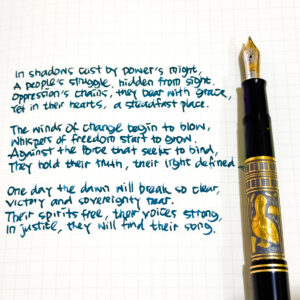 In shadows cast by power's might,
A people's struggle, hidden from sight.
Oppression's chains, they bear with grace,
Yet in their hearts, a steadfast place.
The winds of change begin to blow,
Whispers of freedom start to grow.
Against the force that seeks to bind,
They hold their truth, their light defined
One day the dawn will break so clear,
Victory and sovereignty near.
Their spirits free, their voices strong,
In justice, they will find their song.